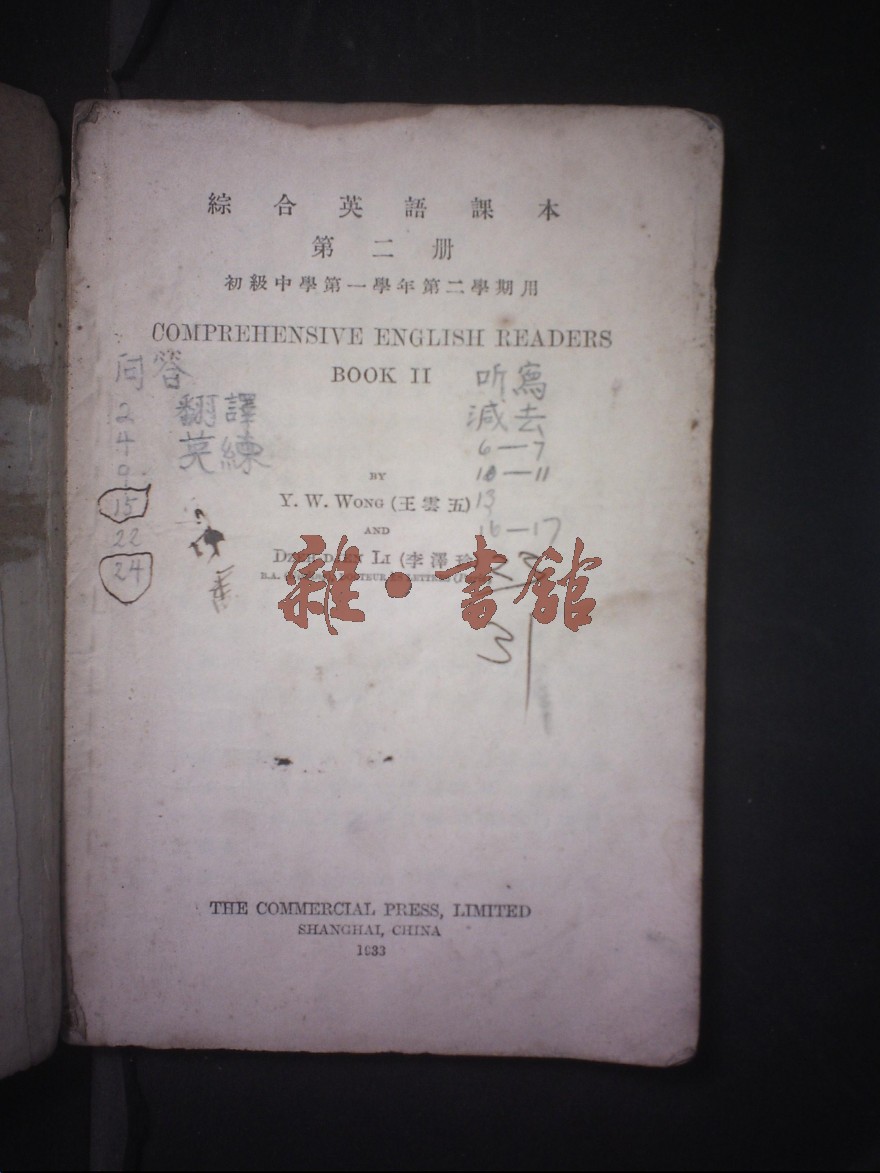 綜合英語課本
第二册
初級中學第一學年第二學期用
COMPREHENSIVE ENGLISH READERS
BOOK II
问答
2
4
9
15
22
24
翻譯
英練
听寫
減去
6—7
10—11
13
16—17
BY
Y. W. WONG (王雲五)
AND
LI (李澤珍)
B.A.
雜·書館
THE COMMERCIAL PRESS, LIMITED
SHANGHAI, CHINA
1933